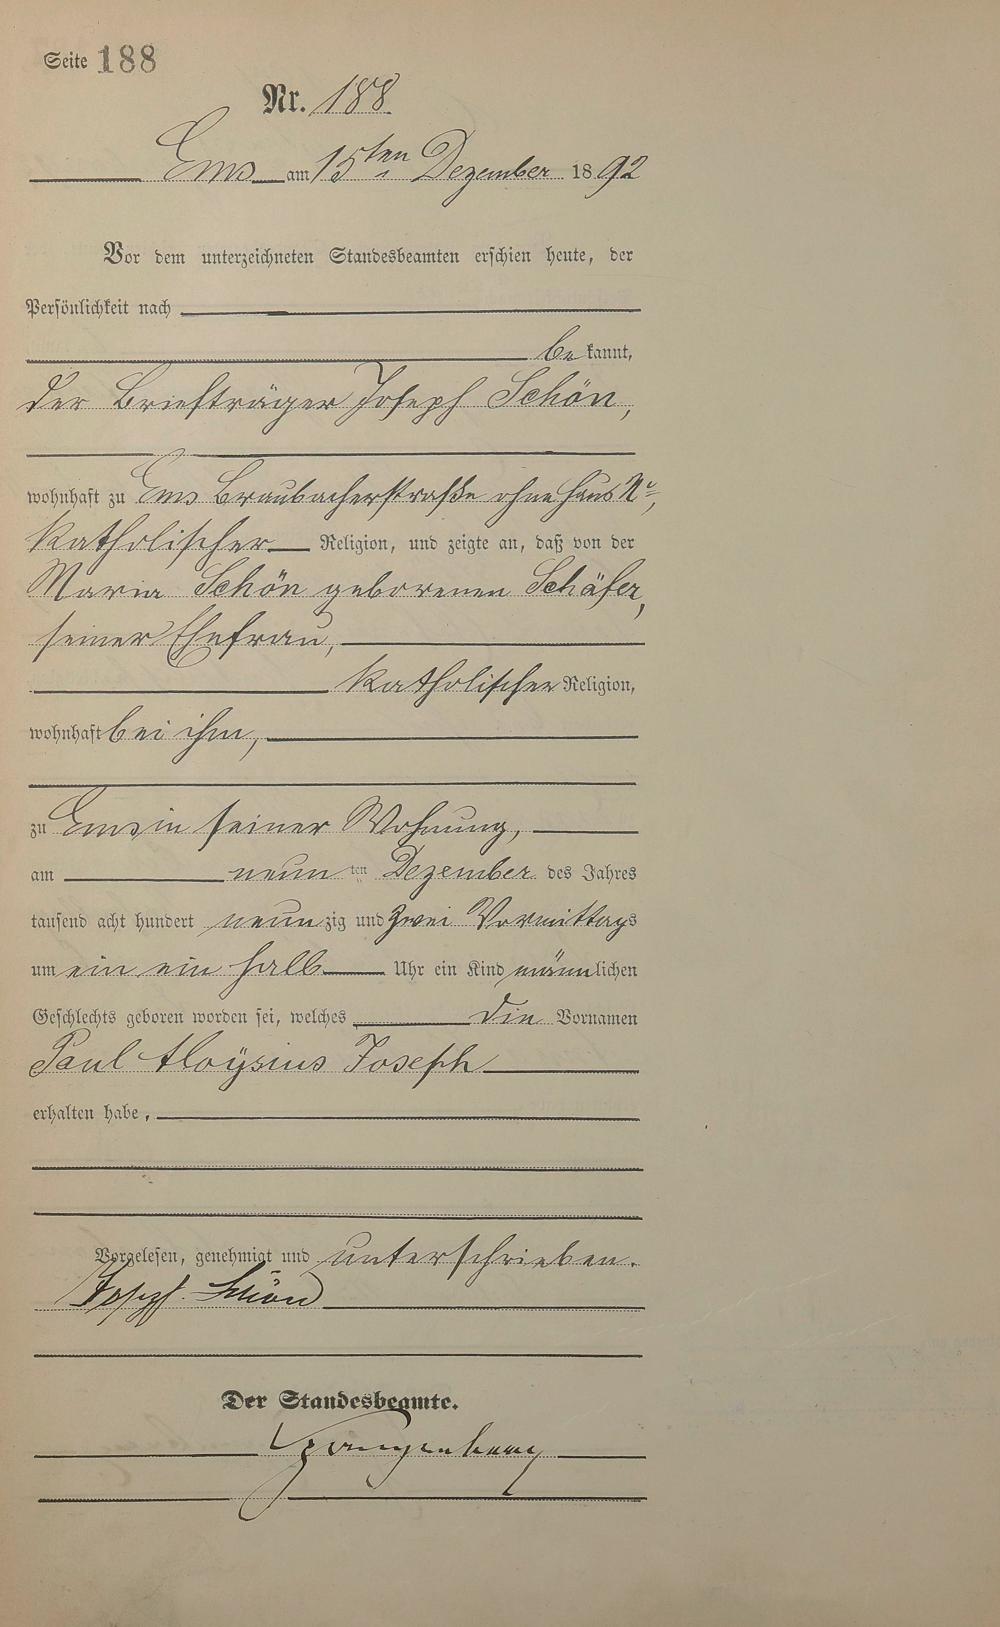 Seite 188
Nr. 188
Ems am 15ten Dezember 1892
Vor dem unterzeichneten Standesbeamten erschien heute, der
Persönlichkeit nach
bekannt,
der Briefträger Joseph Schön,
wohnhaft zu Ems Braubacherstraße ohne Haus No,
katholischer Religion, und zeigte an, daß von der
Maria Schön geborenen Schäfer,
seiner Ehefrau,
katholischer Religion,
wohnhaft bei ihm,
zu Ems in seiner Wohnung,
am neunten Dezember des Jahres
tausend acht hundert neunzig und zwei Vormittags
um ein ein halb Uhr ein Kind männlichen
Geschlechts geboren worden sei, welches die Vornamen
Paul Aloÿsius Joseph
erhalten habe.
Vorgelesen, genehmigt und unterschrieben.
Joseph Schön
Der Standesbeamte.
Spangenberg